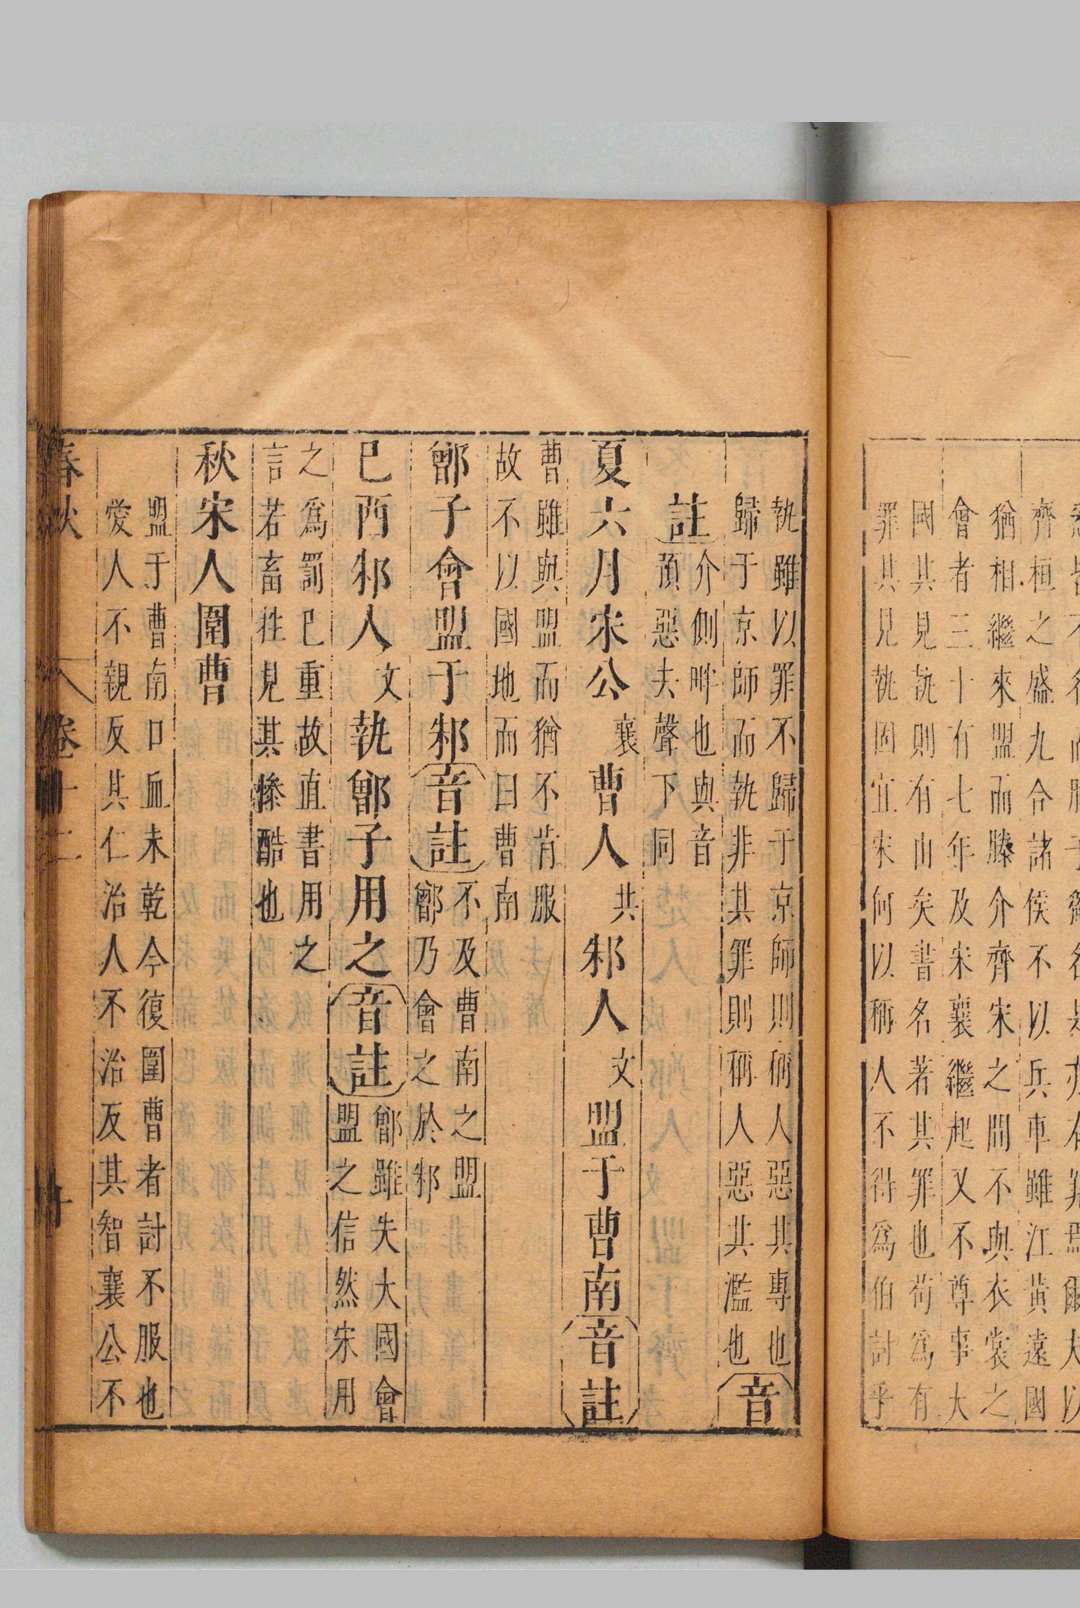 齊桓之盛九合諸侯不以兵車雖江黃遠國
猶相繼來盟而滕介齊宋之間不與衣裳之
會者三十有七年及宋襄繼起又不尊事大
國其見執則有由矣書名著其罪也苟為有
罪其見執固宜宋何以稱人不得為伯討乎
執雖以罪不歸于京師則稱人惡其專也
歸于京師而執非其罪則稱人惡其濫也音
註介側畔也與音
預惡去聲下同
夏六月宋公襄曹人共邾人文盟于曹南音註
曹雖與盟而猶不肯服
故不以國地而曰曹南
鄫子會盟于邾音註不及曹南之盟
鄫乃會之於邾
己酉邾人文執鄫子用之音註鄫雖失大國會
盟之信然宋用
之為罰已重故直書用之
言若畜牲見其慘酷也
秋宋人圍曹
盟于曹南口血未乾今復圍曹者討不服也
愛人不親反其仁治人不治反其智襄公不
春秋 卷十二